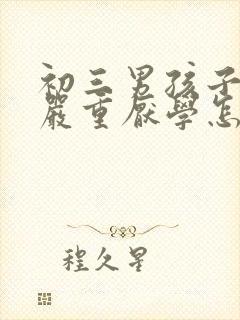 初三男孩子
嚴重厭學怎
程久星